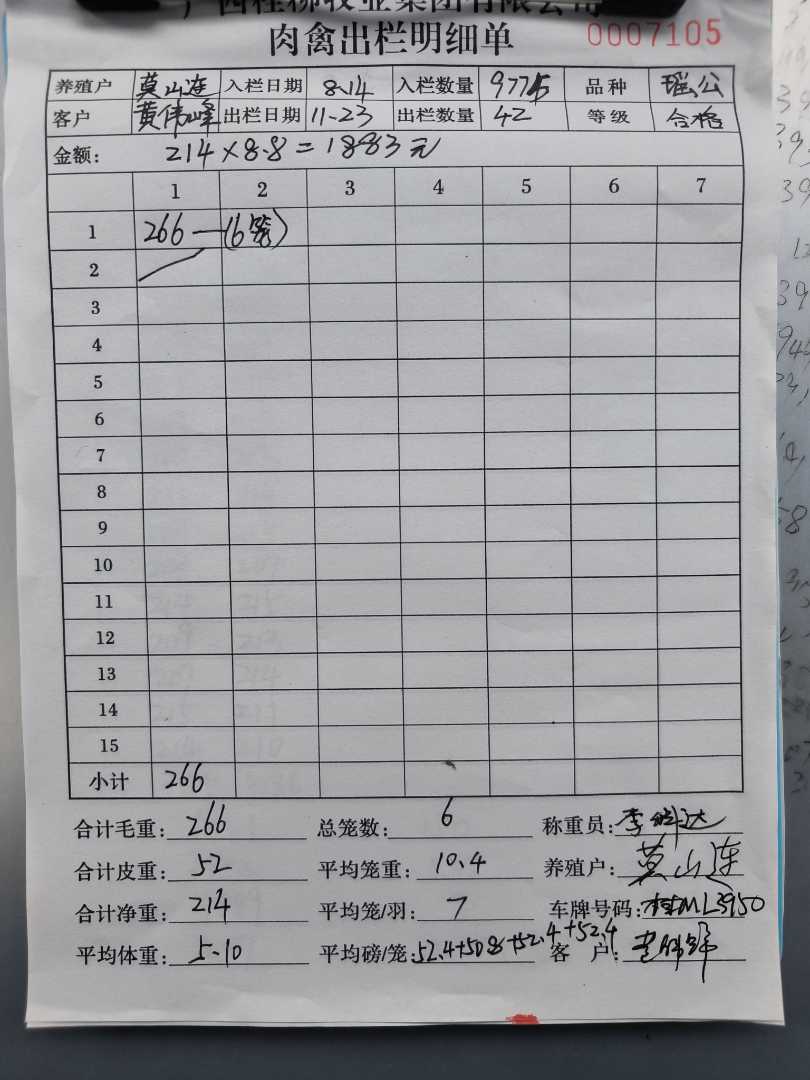 广西桂柳牧业集团有限公司
肉禽出栏明细单 0007105
养殖户 莫山连 入栏日期 8.14 入栏数量 9775 品种 瑶公
客户 黄伟峰 出栏日期 11-23 出栏数量 42 等级 合格
金额: 214×8.8=1883元
1 2 3 4 5 6 7
1 266—(6笼)
2
3
4
5
6
7
8
9
10
11
12
13
14
15
小计 266
合计毛重: 266 总笼数: 6 称重员:
合计皮重: 52 平均笼重: 10.4 养殖户: 莫山连
合计净重: 214 平均笼/羽: 7 车牌号码: 桂ML3950
平均体重: 5.10 平均磅/笼: 52.4+50.8+52.4+52.4 客户: